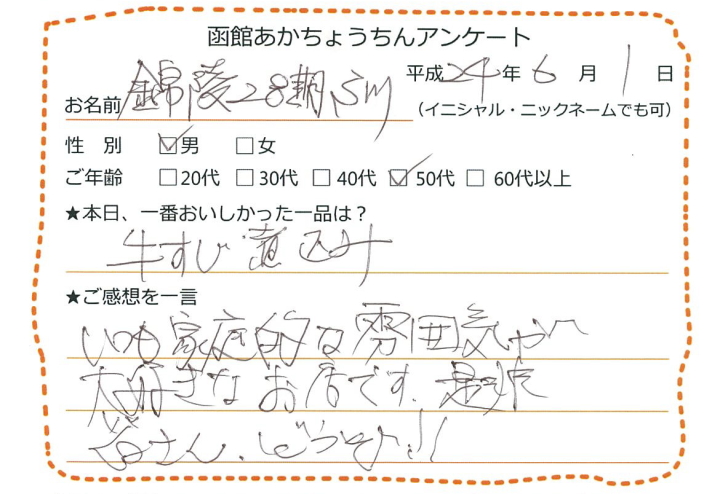 函館あかちょうちんアンケート
平成24年6月1日
お名前 錦陵28期 石川
（イニシャル・ニックネームでも可）
性 別 ☑男 □女
ご年齢 □20代 □30代 □40代 ☑50代 □60代以上
★本日、一番おいしかった一品は？
牛すじ煮込み
★ご感想を一言
いつも家庭的な雰囲気で
大好きなお店です。
皆さん、どうぞ!!